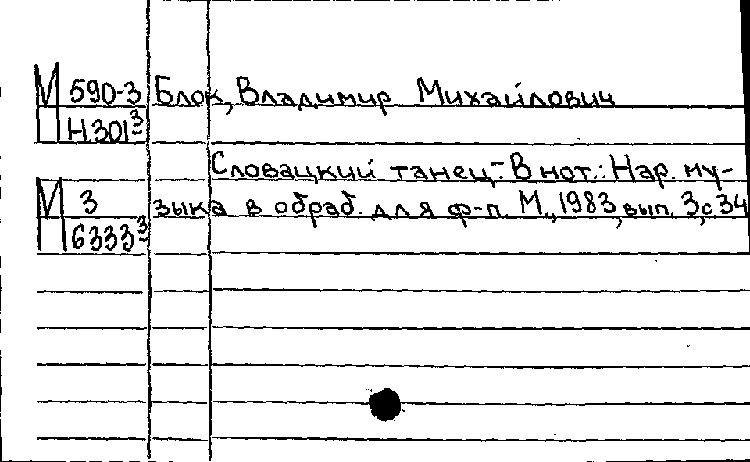 М 590-3 Блок, Владимир Михайлович
Н301-3
Словацкий танец.- В нот.: Нар. му-
М 3 зыка в обраб. для ф-п. М., 1983, вып. 3, с 34
6333-3